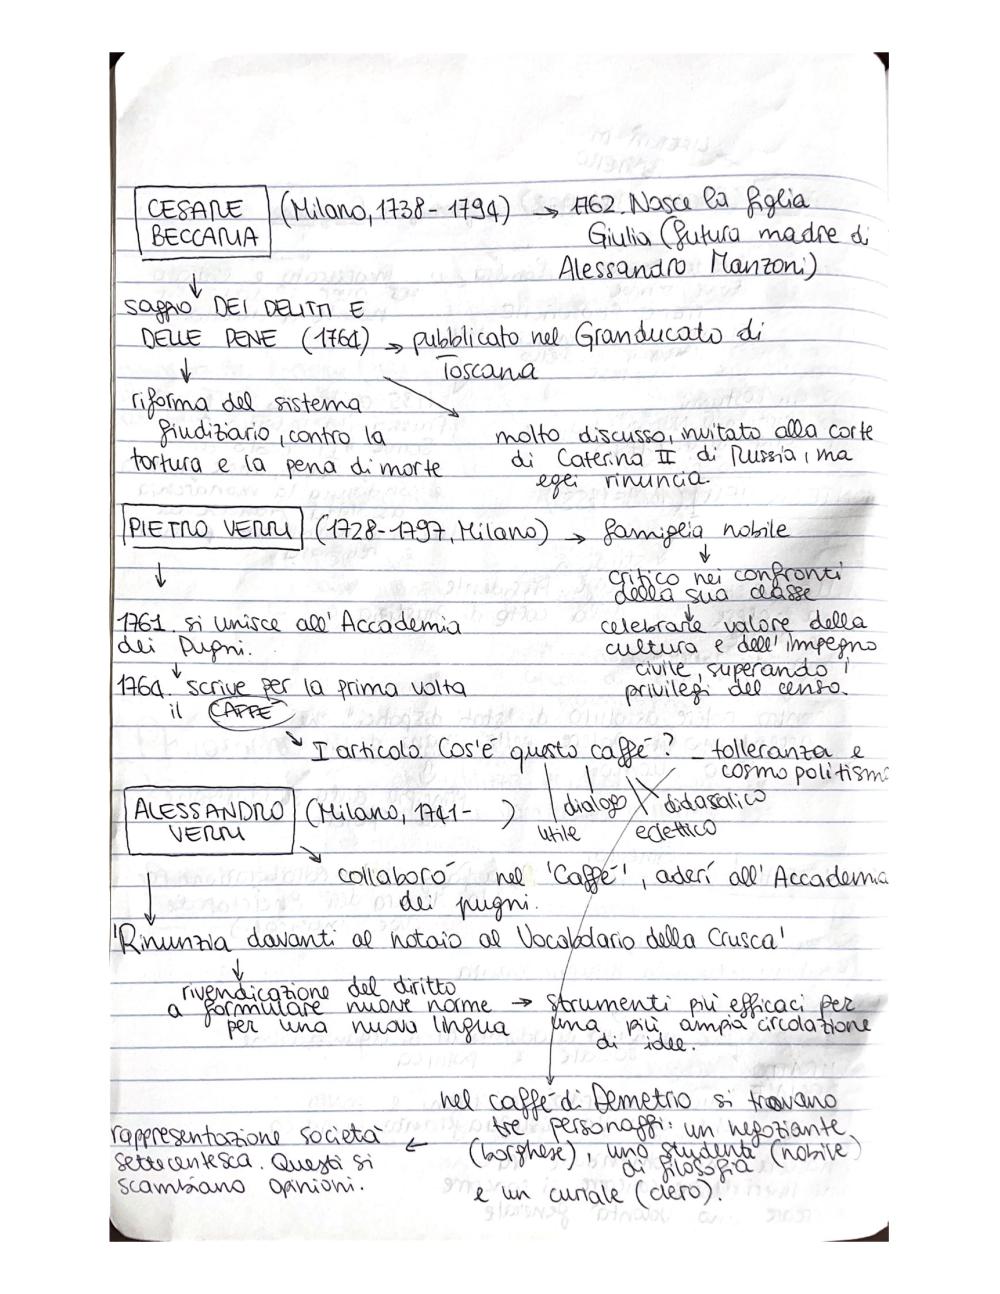 CESARE BECCARIA (Milano, 1738 - 1794) → 1762. Nasce la figlia
Giulia (futura madre di
Alessandro Manzoni)
saggio DEI DELITTI E
DELLE PENE (1764) → pubblicato nel Granducato di
Toscana
riforma del sistema
giudiziario, contro la
tortura e la pena di morte
molto discusso, invitato alla corte
di Caterina II di Russia, ma
egli rinuncia.
PIETRO VERRI (1728-1797, Milano) → famiglia nobile
critico nei confronti
della sua classe
celebrare valore della
cultura e dell'impegno
civile, superando i
privilegi del censo.
1761. si unisce all'Accademia
dei Pugni.
1764. scrive per la prima volta
il CAFFÈ
I articolo Cos'é questo caffé? - tolleranza e
cosmopolitismo
dialogo didascalico
utile eclettico
ALESSANDRO VERRI (Milano, 1741- )
collaboró nel 'Caffé', aderí all'Accademia
dei pugni.
'Rinunzia davanti al notaio al Vocabolario della Crusca'
rivendicazione del diritto
a formulare nuove norme → strumenti piú efficaci per
per una nuova lingua una piú ampia circolazione
di idee.
nel caffé di Demetrio si trovano
tre personaggi: un negoziante
(borghese), uno studente (nobile)
di filosofia
e un curiale (clero).
rappresentazione societá ←
settecentesca. Questi si
scambiano opinioni.